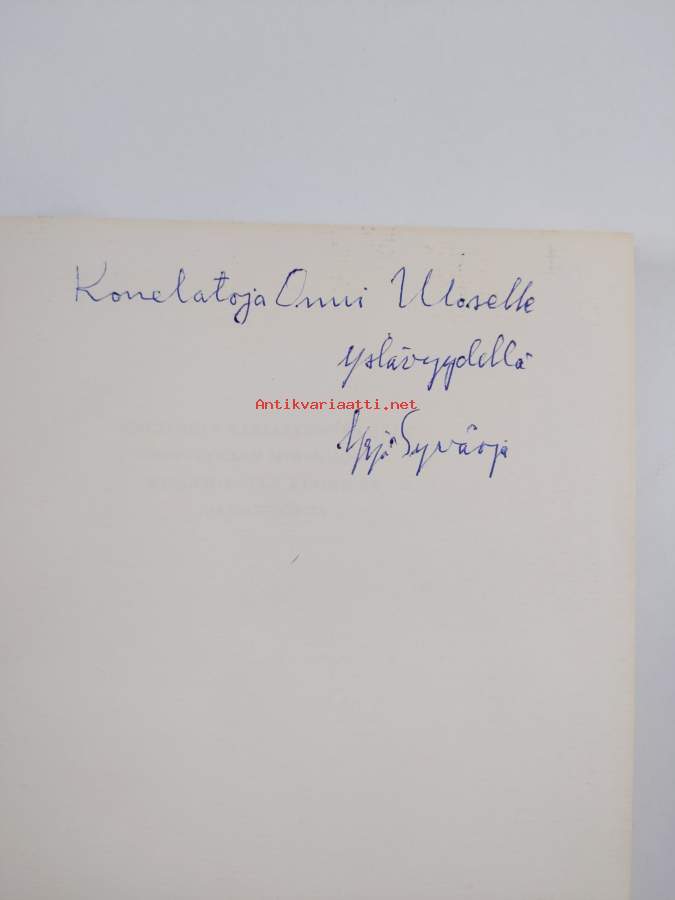 Konelatoja Onni Uloselle
ystävyydellä
Antikvariaatti.net
Yrjö Syväoja